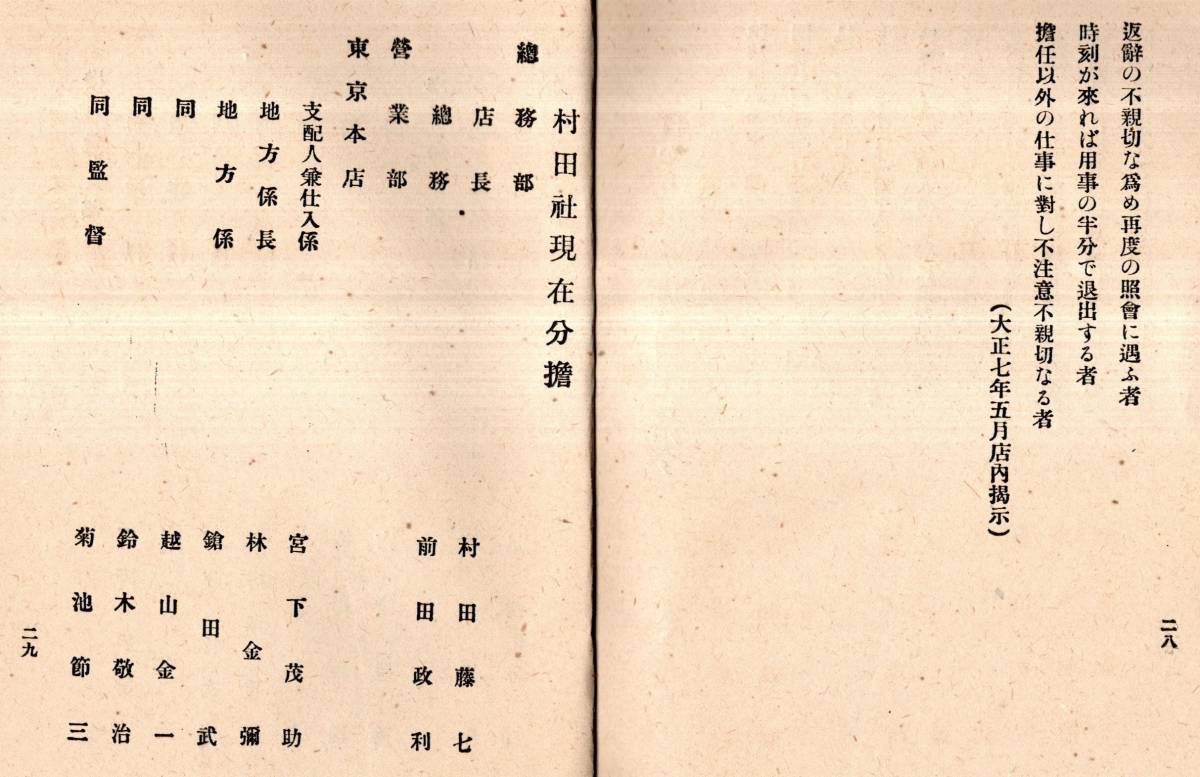 返辭の不親切な爲め再度の照會に遇ふ者
時刻が來れば用事の半分で退出する者
擔任以外の仕事に對し不注意不親切なる者
(大正七年五月店內揭示)
二八
村田社現在分擔
總務部
店長 村田藤七
總務 前田政利
營業部
東京本店
支配人兼仕入係 宮下茂助
地方係長 林金彌
地方係 鎗田武
同 越山金一
同 鈴木敬治
同監督 菊池節三
二九